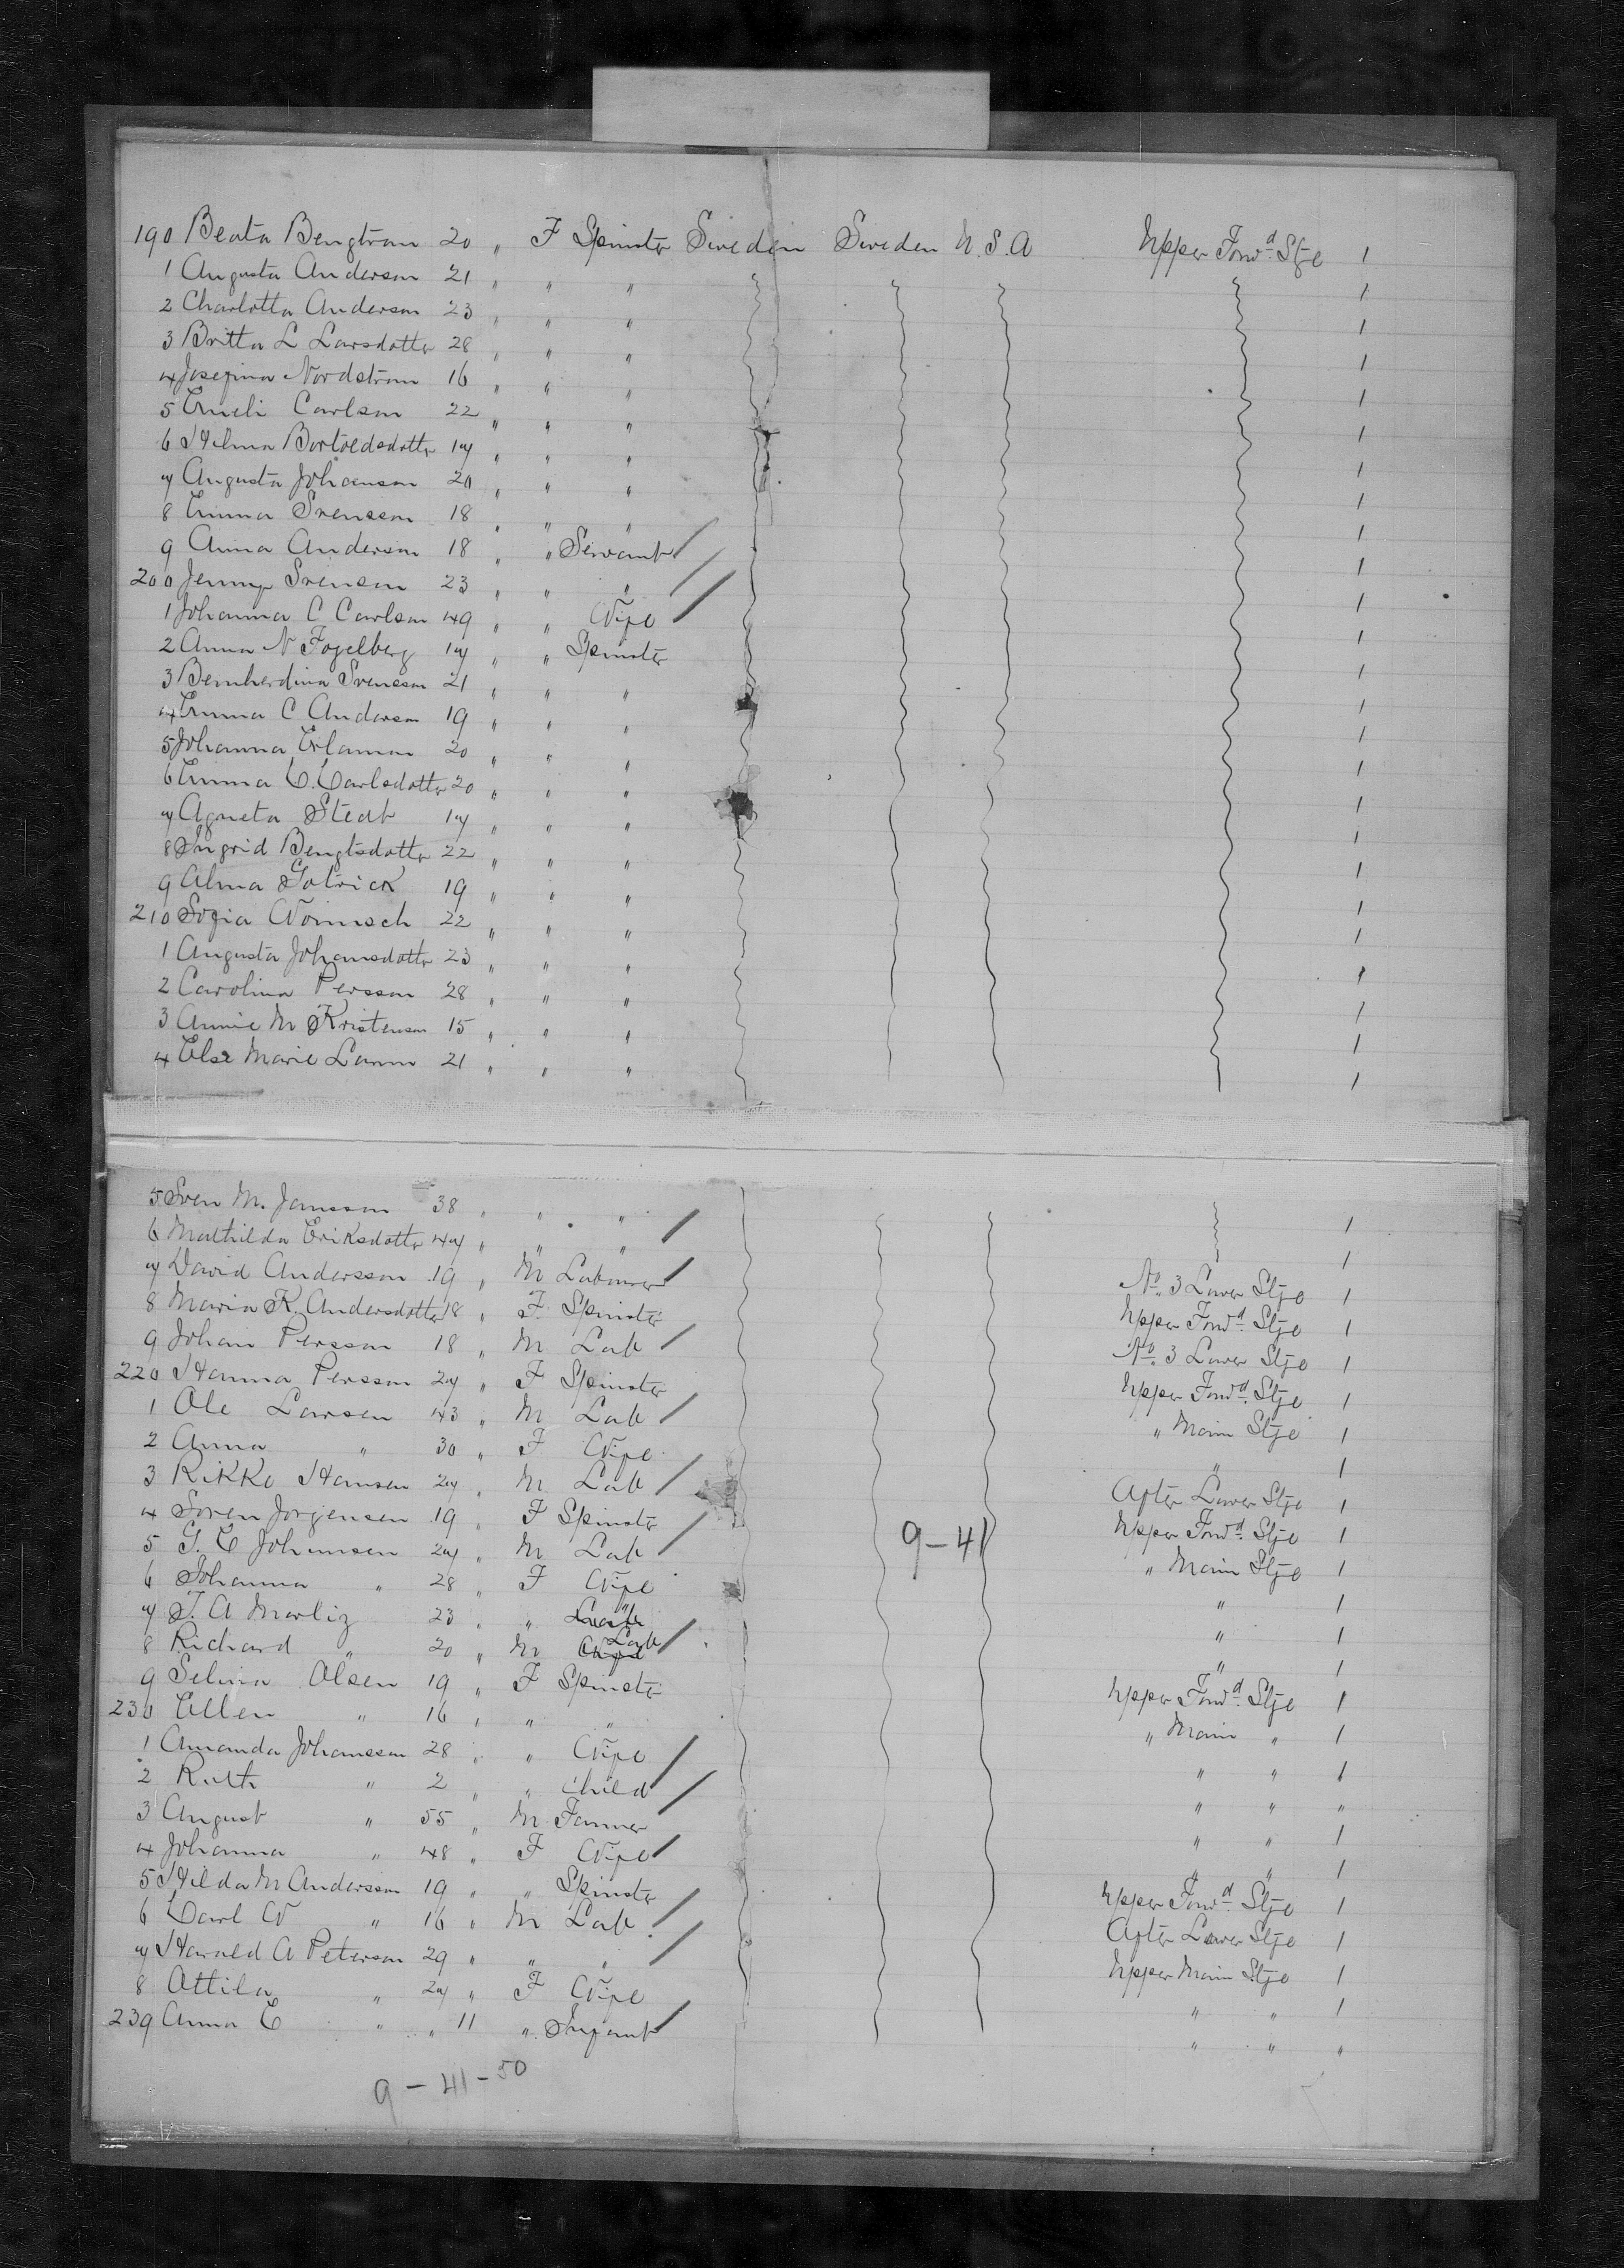 190 Beata Bengtson 20 " F Spinster Sweden Sweden U.S.A Upper Forwd Stge 1
1 Augusta Anderson 21 " " " 1
2 Charlotta Anderson 23 " " " 1
3 Britta L Larsdotter 28 " " " 1
4 Josefina Nordstrom 16 " " " 1
5 Emeli Carlson 22 " " " 1
6 Hilma 17 " " " 1
7 Augusta Johanson 20 " " " 1
8 Emma Svensson 18 " " " 1
9 Anna Anderson 18 " " Servant 1
200 Jenny Svenson 23 " " " 1
1 Johanna C Carlson 49 " " Wife 1
2 Anna N Fogelberg 17 " " Spinster 1
3 Bernherdina Svensson 21 " " " 1
4 Emma C Anderson 19 " " " 1
5 Johanna 20 " " " 1
6 Emma C. Carlsdotter 20 " " " 1
7 Agneta Stedt 17 " " " 1
8 Ingrid Bengtsdotter 22 " " " 1
9 Alma Gotrick 19 " " " 1
210 Sofia 22 " " " 1
1 Augusta Johansdotter 23 " " " 1
2 Carolina Persson 28 " " " 1
3 Annie M Kristenson 15 " " " 1
4 Else Marie 21 " " " 1
5 Sven M. Jansson 38 " " " 1
6 Mathilda Eriksdotter 47 " " " 1
7 David Andersson 19 " M Labourer No. 3 Lower Stge 1
8 Maria K. Andersdotter 18 " F Spinster Upper Forwd Stge 1
9 Johan Persson 18 " M Lab No. 3 Lower Stge 1
220 Hanna Persson 27 " F Spinster Upper Forwd Stge 1
1 Ole Larsen 43 " M Lab " Main Stge 1
2 Anna " 30 " F Wife " 1
3 Rikke Hansen 27 " M Lab After Lower Stge 1
4 Soren Jorgensen 19 " F Spinster Upper Forwd Stge 1
5 G. C Johansen 27 " M Lab 9-41 " Main Stge 1
6 Johanna " 28 " F Wife " 1
7 J. A Marliz 23 " " Lab " " 1
8 Richard " 20 " M Wife Lab " 1
9 Selma Olsen 19 " F Spinster Upper Forwd Stge 1
230 Ellen " 16 " " " " Main " 1
1 Amanda Johansson 28 " " Wife " " 1
2 Ruth " 2 " " Child " " "
3 August " 55 " M Farmer " " 1
4 Johanna " 48 " F Wife " " 1
5 Hilda M Andersson 19 " " Spinster Upper Forwd Stge 1
6 Carl W " 16 " M Lab After Lower Stge 1
7 Harald A Peterson 29 " " " Upper Main Stge 1
8 Attila " 27 " F Wife " " 1
239 Anna C " " 11 " Infant " " "
9-41-50